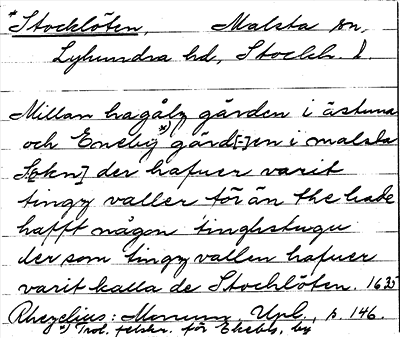 *Stocklöten, Malsta sn,
Lyhundra hd, Stockh. l.
Millan hagålz gården i ästuna
och Eneby*) gård[-]en i malsta
S[okn] der hafuer varit
tingz valler för än the hade
hafft någon tinghstugu
der som tingz vallen hafuer
varit kalla de Stocklöten. 1635
Rhezelius: Monum. Upl., s. 146.
*) Trol. felskr. för Ekeby, by